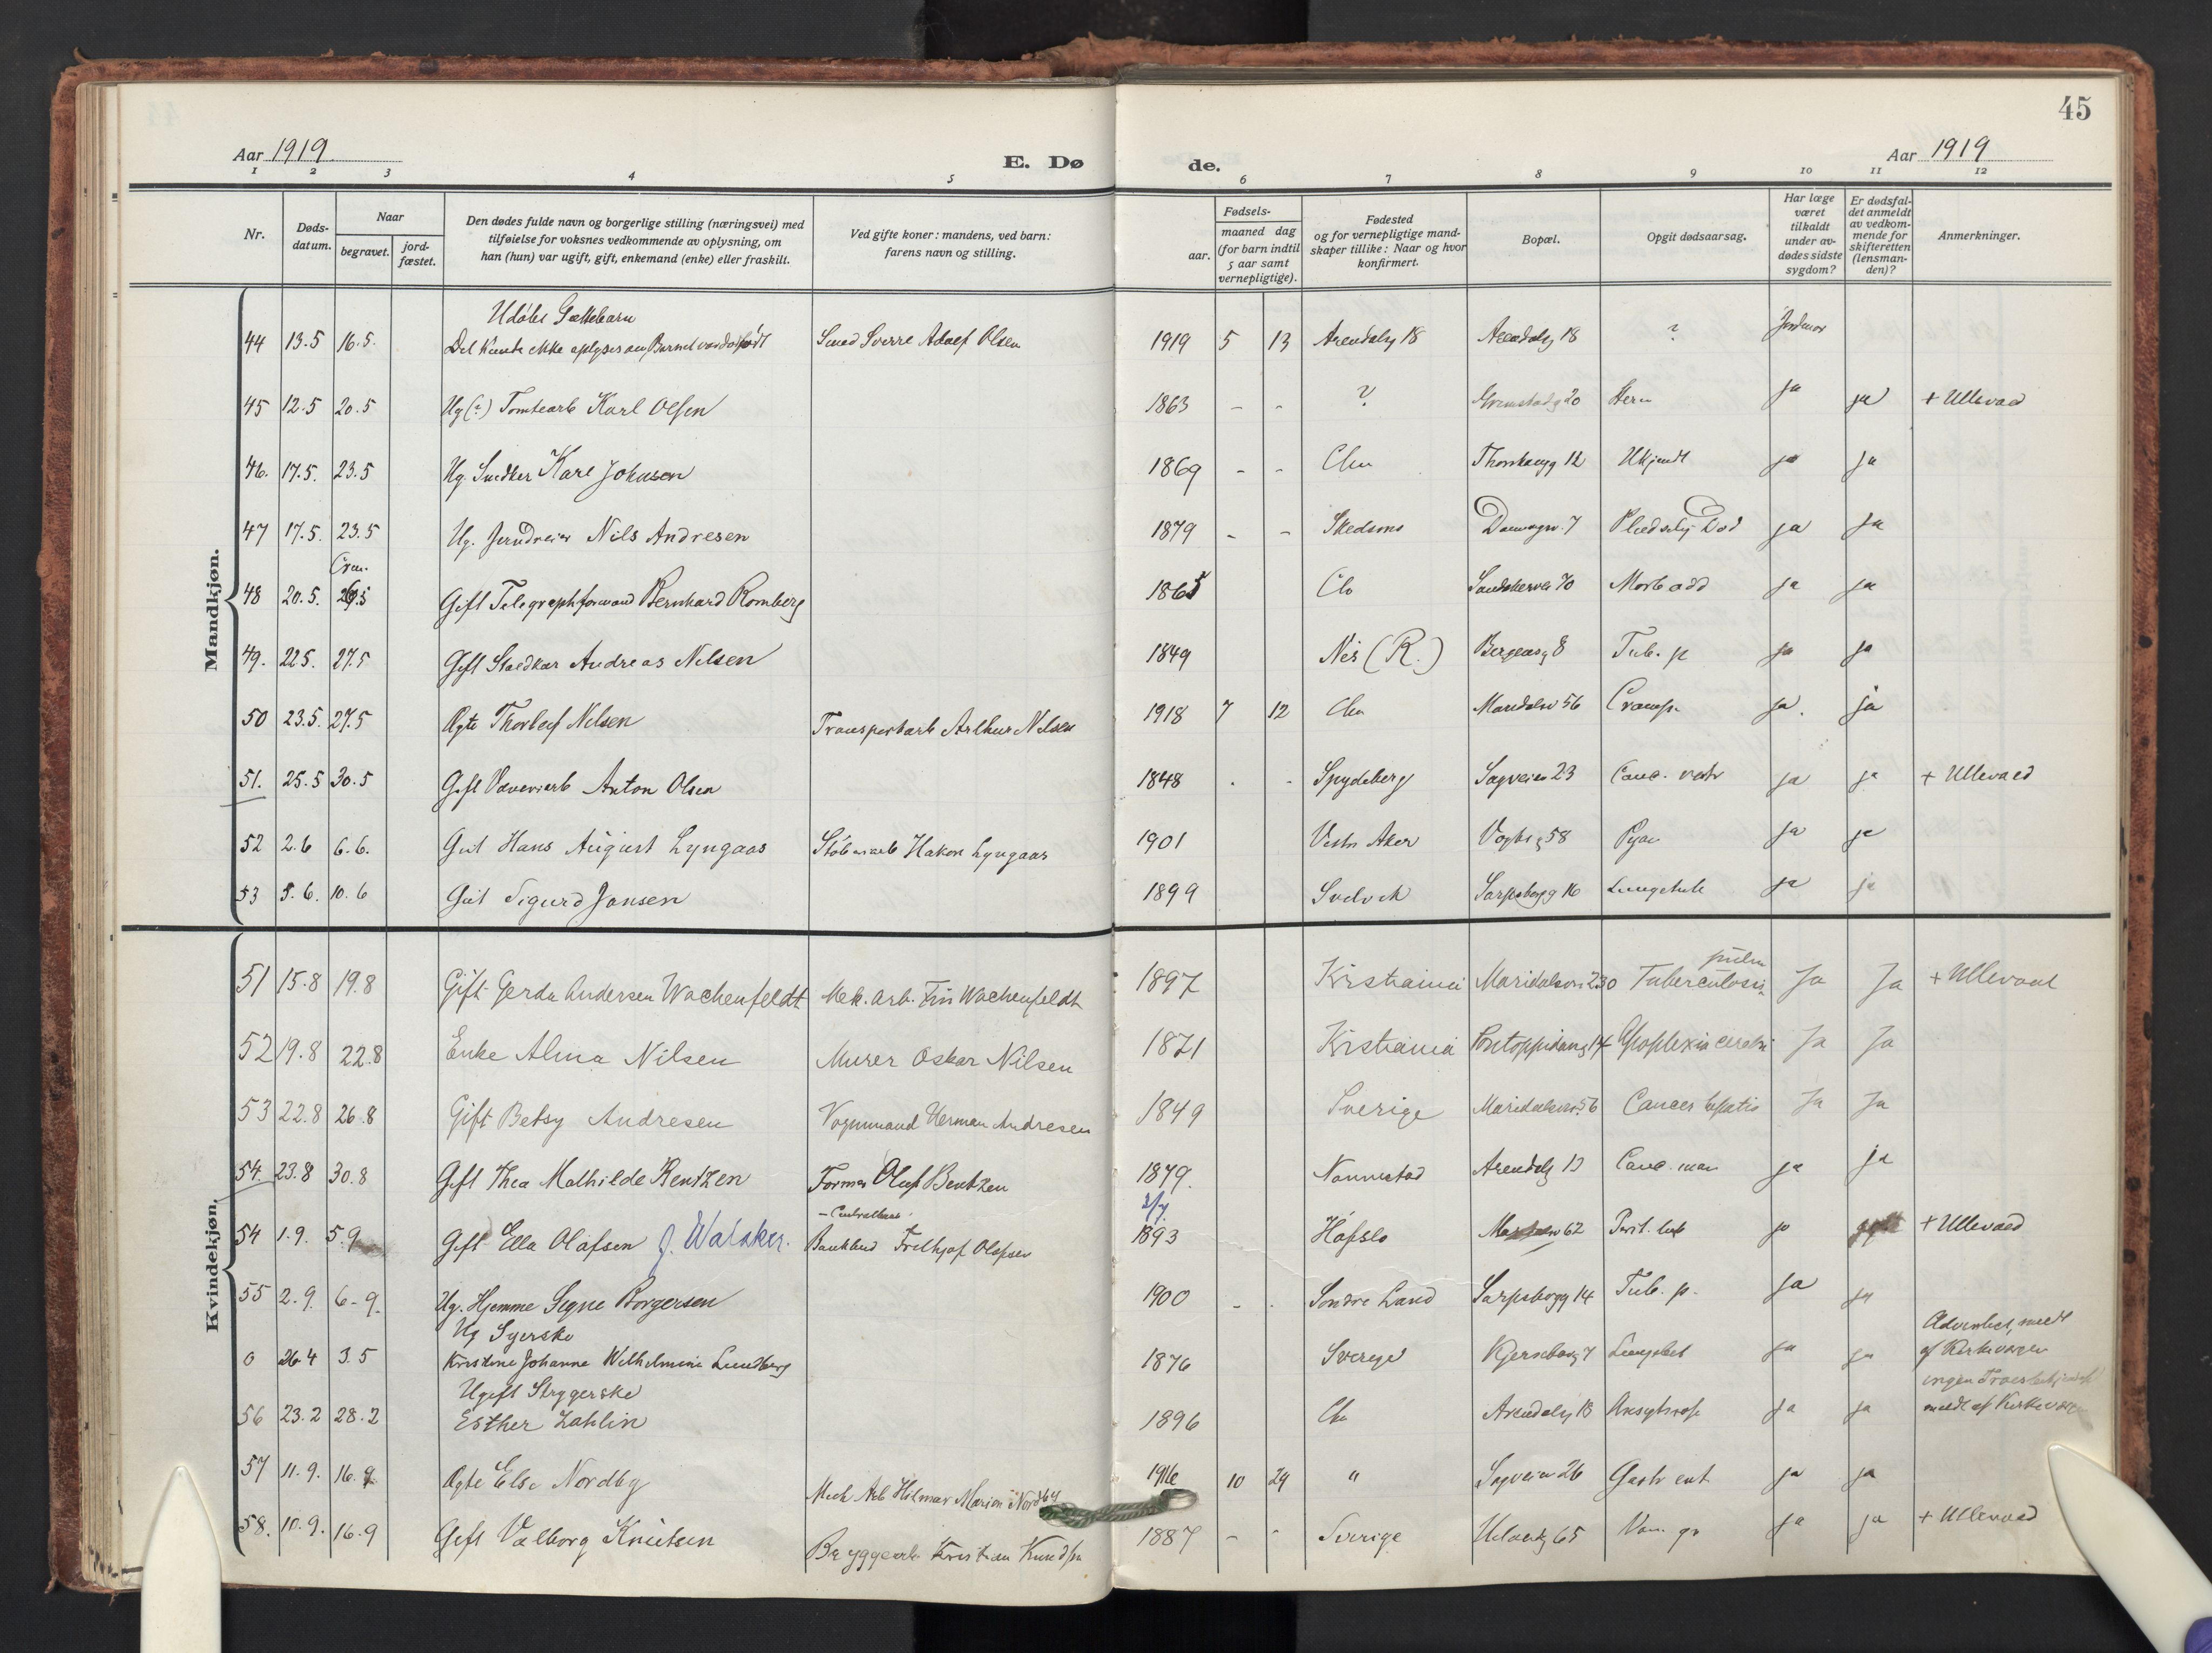 45
Aar 1919
E. Dø
de.
Aar 1919
1 2 3 4 5 6 7 8 9 10 11 12
Nr.
Døds-
datum.
Naar
begravet.
jord-
fæstet.
Den dødes fulde navn og borgerlige stilling (næringsvei) med
tilføielse for voksnes vedkommende av oplysning, om
han (hun) var ugift, gift, enkemand (enke) eller fraskilt.
Ved gifte koner: mandens, ved barn:
farens navn og stilling.
Fødsels-
aar.
maaned dag
(for barn indtil
5 aar samt
vernepligtige).
Fødested
og for vernepligtige mand-
skaper tillike: Naar og hvor
konfirmert.
Bopæl.
Opgit dødsaarsag.
Har læge
været
tilkaldt
under av-
dødes sidste
sygdom?
Er dødsfal-
det anmeldt
av vedkom-
mende for
skifteretten
(lensman-
den)?
Anmerkninger.
Mandkjøn.
Udøbt
44 13.5 16.5. Det kunde ikke oplyses om Barnet var Smed Sverre Adolf Olsen 1919 5 13 Arendalsg 18 Arendalsg 18 ? Jordmor
45 12.5 20.5 Ug (?) Tomtearb Karl Olsen 1863 - - ? Grimstadg 20 ja ja + Ullevaal
46. 17.5. 23.5 Ug. Snedker Karl Johnsen 1869 - - Chra 12 Ukjendt ja ja
47 17.5. 23.5 Ug. Jerndreier Nils Andresen 1879 - - Skedsmo 7 Pludselig Død ja ja
Crem.
48 20.5. 26.5 Gift Telegrafformand Bernhard Romberg 1865 70 Morb ja ja
49. 22.5. 27.5 Gift Andreas Nilsen 1849 Nes (R.) Bergensg 8 Tub. p ja ja
50 23.5. 27.5 Ægte Thorleif Nilsen Transportarb Arthur Nilsen 1918 7 12 Chra Maridalsv 56 Cramp. ja. ja
51. 25.5 30.5 Gift Væveriarb Anton Olsen 1848 - Spydeberg Sagveien 23 Canc. ventr ja ja + Ullevaal
52 2.6 6.6. Gut Hans August Lyngaas Støberiarb Hakon Lyngaas 1901 Vestre Aker Vogtsg 58 ja ja
53 5.6. 10.6 Gut Sigurd Jansen 1899 Svelvik Sarpsborgg 16 Lungetub ja ja
Kvindekjøn.
pulm
51 15.8 19.8 Gift Gerda Andersen Wachenfeldt Mek. arb. Finn Wachenfeldt 1897 Kristiania Maridalsvn 230 Tuberculosis Ja Ja + Ullevaal
52 19.8 22.8 Enke Alma Nilsen Murer Oskar Nilsen 1871 Kristiania Pontoppidansg 14 Apoplexia cerebri Ja Ja
53 22.8 26.8 Gift Betsy Andresen Vognmand Herman Andresen 1849 Sverige Maridalsvn 56 Cancer hepatis Ja Ja
54. 23.8 30.8 Gift Thea Mathilde Bentzen Former Oluf Bentzen 1879. Nannestad Arendalsg Canc. mam ja ja
2/7
54 1.9. 5.9 Gift Ella Olafsen f. Walaker. Fridtjof Olafsen 1893 Hafslo 62 Perit. tub ja + Ullevaal
55 2.9. 6-9. Ug. Hjemme Signe Borgersen 1900 - Søndre Land Sarpsborgg 14 Tub. p. ja ja
Ug Syerske
0 26.4 3.5 Kristine Johanne Wilhelmine Lundberg 1876 Sverige 7 ja ja Adventist, meldt
af Kirkevergen
Ugift Strygerske
56 23.2 28.2 Esther Zahlin 1896 Chr Arendalsg 18 ja ja ingen
meldt af Kirkeverge
57 11.9. 16.9. Ægte Else Nordby Mek Arb Hilmar Marion Nordby 1916 10 29 " Sagveien 26 Gastr ent ja ja
58. 10.9. 16.9 Gift Valborg Knutsen Bryggearb Kristian Knudsen 1887 - - Sverige Uelandsg 65 ja ja + Ullevaal